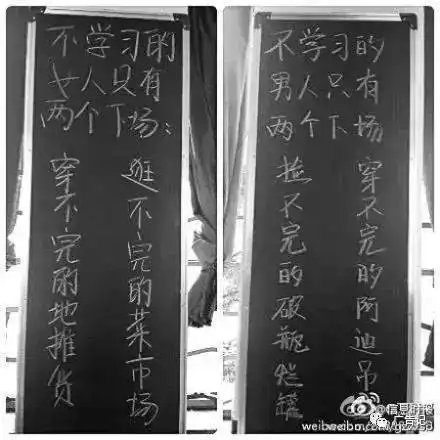 不学习的
女人只有
两个下场：
逛不完的菜市场
穿不完的地摊货
不学习的
男人只有
两个下场
穿不完的阿迪吊
捡不完的破瓶烂罐
@信息时报